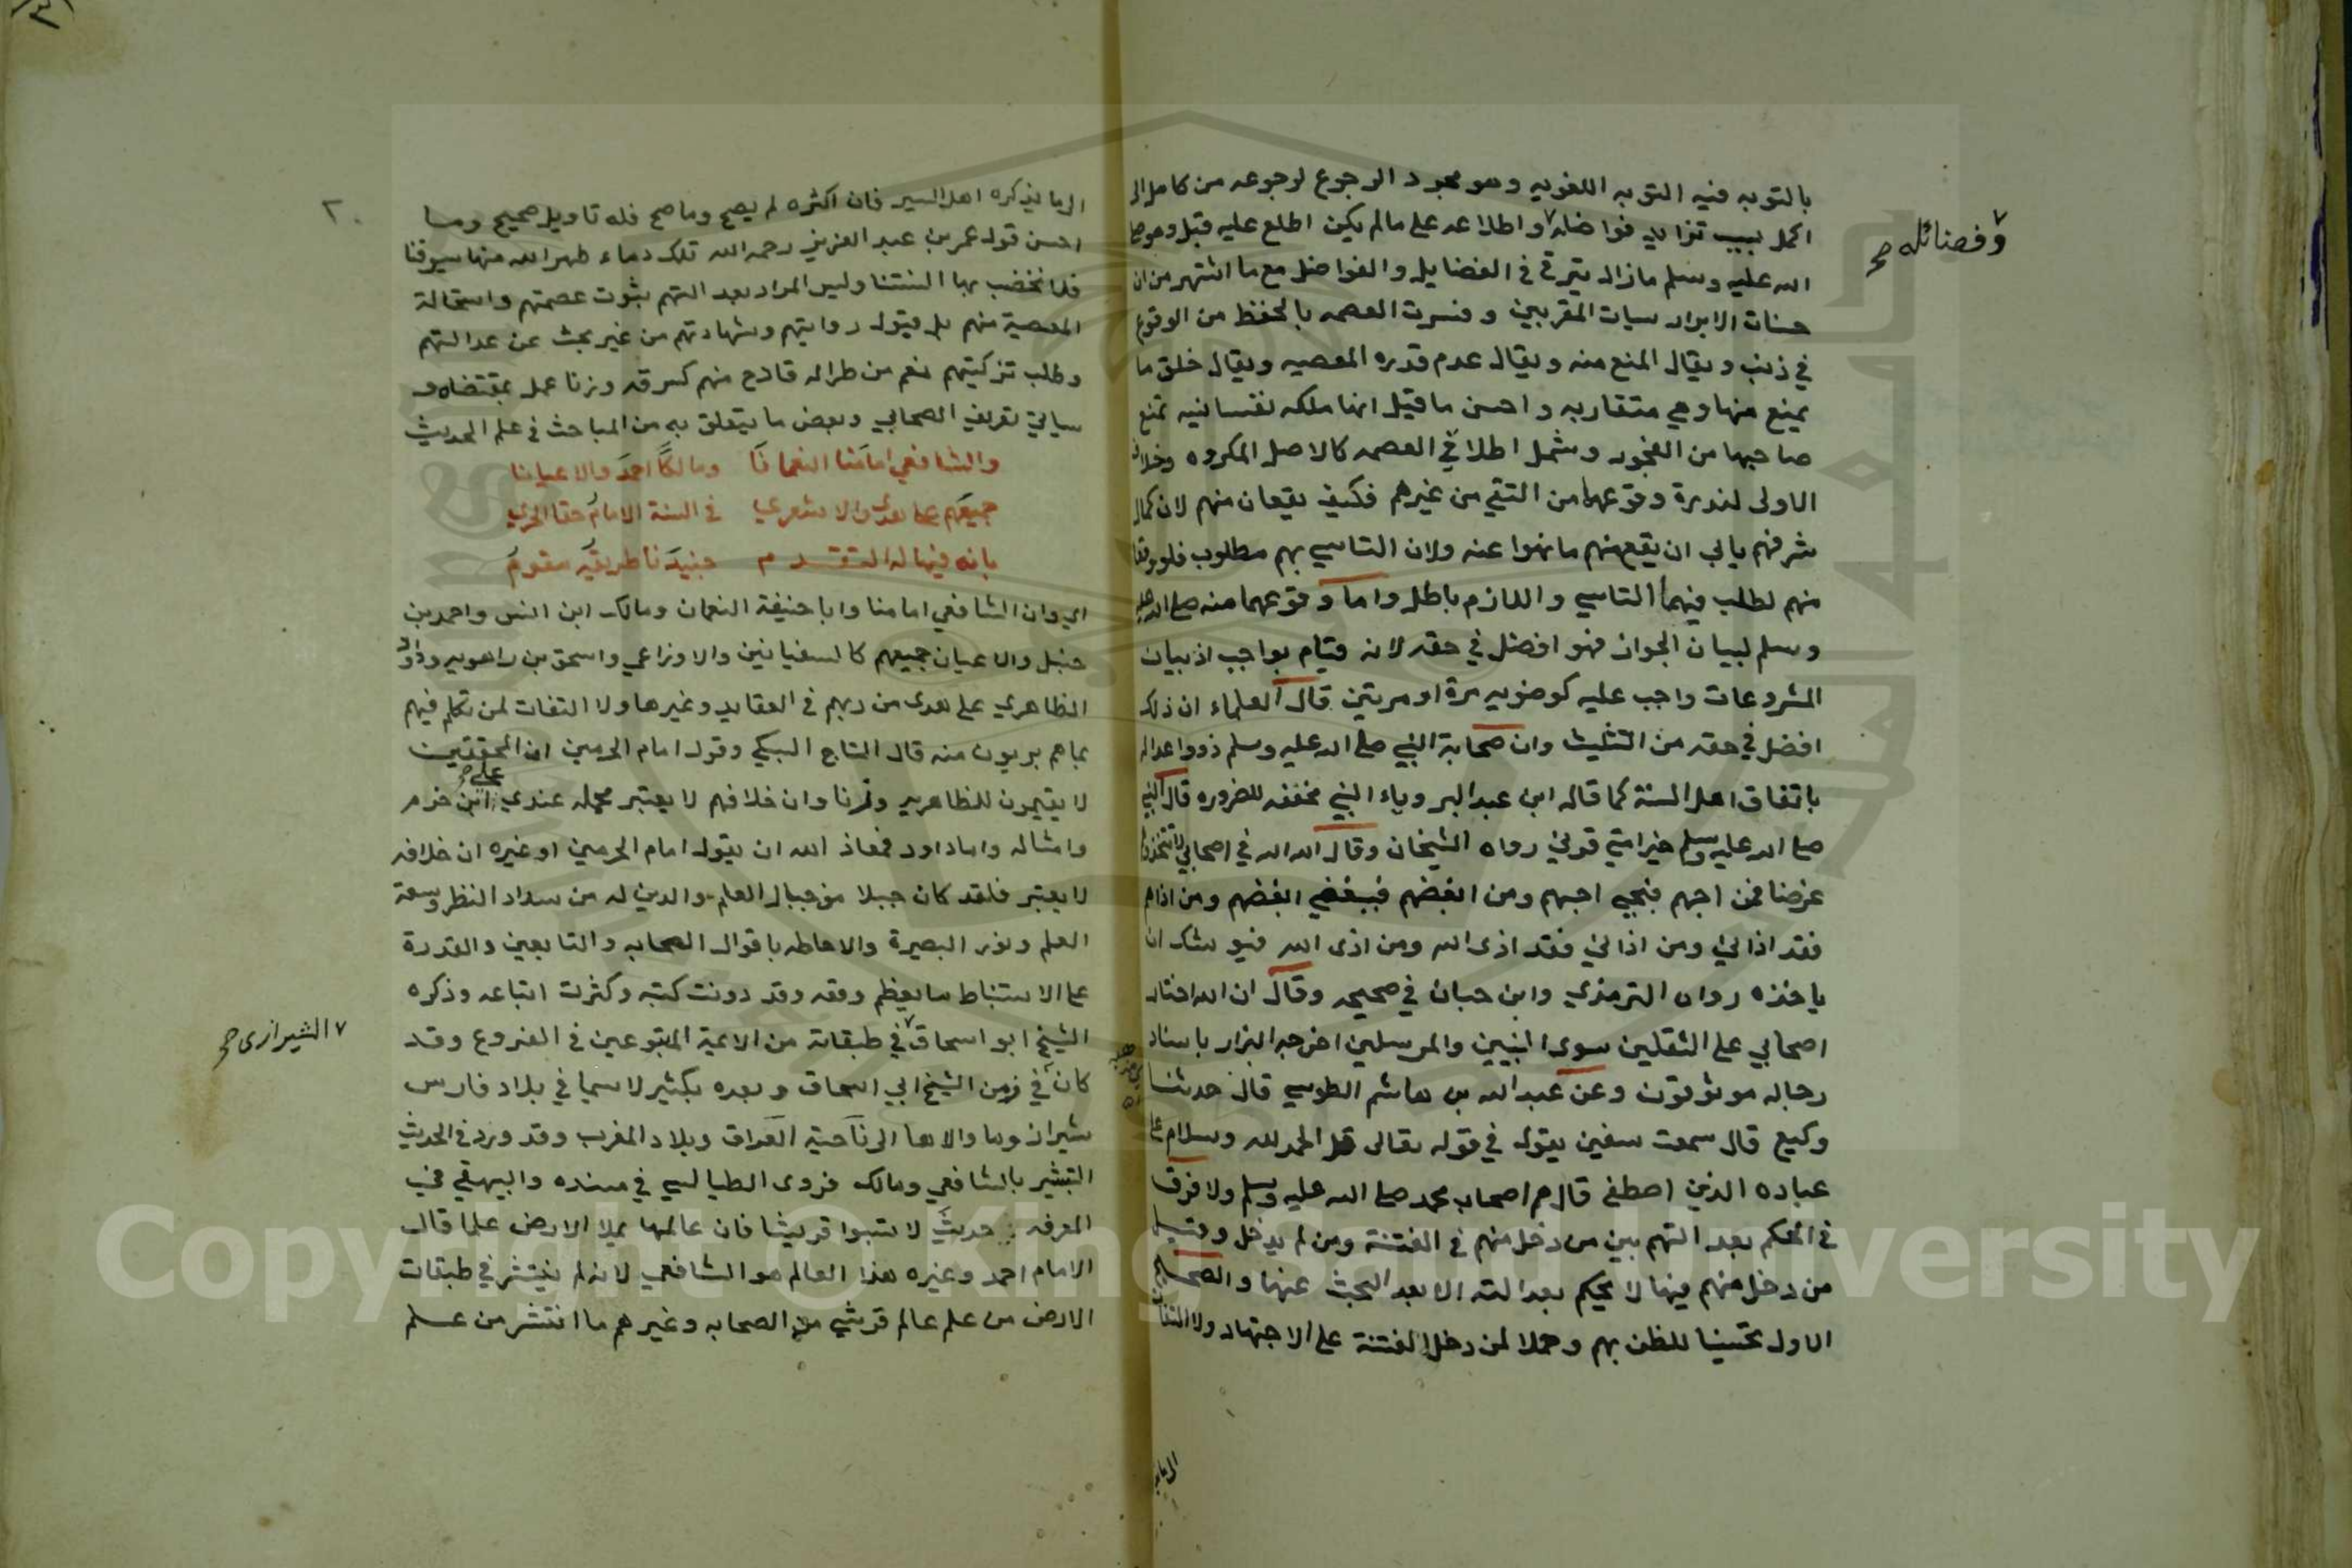 بالتوبه فيه التوبه اللغويه وهو مجرد الرجوع لرجوعه من كامل الى
اكمل بسبب تزايد فواضله واطلاعه على مالم يكن اطلع عليه قبل وهو صلى
وفضائله صح
الله عليه وسلم مازال يترقى في الفضايل والفواضل مع ما اشتهر من ان
حسنات الابرار سيات المقربين وفسرت العصمه بالحفظ من الوقوع
في ذنب ويقال المنع منه ويقال عدم قدره المعصيه ويقال خلق ما
يمنع منها وهي متقاربه واحسن ما قيل انها ملكه نفسانيه تمنع
صاحبها من الفجور وشمل اطلاقي العصمه كالاصل المكروه وخلاف
الاولى لندرة وقوعهما من التقي من غيرهم فكيف يقعان منهم لان كمال
شرفهم يابى ان يقع منهم ما نهوا عنه ولان التاسي بهم مطلوب فلو وقعا
منهم لطلب فيهما التاسي واللازم باطل واما وقوعهما منه صلى الله عليه
وسلم لبيان الجواز فهو افضل في حقه لانه قيام بواجب اذ بيان
المشروعات واجب عليه كوضويه مرة او مرتين قال العلماء ان ذلك
افضل في حقه من التثليث وان صحابة النبي صلى الله عليه وسلم ذووا عداله
باتفاق اهل السنة كما قاله ابن عبد البر وياء النبي مخففه للضروره قال النبي
صلى الله عليه وسلم خير امتي قرني رواه الشيخان وقال الله الله في اصحابي لا تتخذوهم
غرضا فمن احبهم فبحبي احبهم ومن ابغضهم فببغضي ابغضهم ومن اذاهم
فقد اذاني ومن اذاني فقد اذى الله ومن اذى الله فيوشك ان
ياخذه رواه الترمذي وابن حبان في صحيحه وقال ان الله اختار
اصحابي على الثقلين سوى النبيين والمرسلين اخرجه البزار باسناد
رجاله موثوقون وعن عبد الله بن هاشم الطوسي قال حدثنا
وكيع قال سمعت سفين يقول في قوله تعالى قل الحمد لله وسلام على
عباده الذين اصطفى قال هم اصحاب محمد صلى الله عليه وسلم ولا فرق
في الحكم بعدالتهم بين من دخل منهم في الفتنة ومن لم يدخل وقيل
من دخل منهم فيها لا يحكم بعدالته الا بعد البحث عنها والصحيح
الاول تحسينا للظن بهم وحملا لمن دخل الفتنة على الاجتهاد ولا التفات
الى ما يذكره
الى ما يذكره اهل السير فان اكثره لم يصح وما صح فله تاويل صحيح وما
احسن قول عمر بن عبد العزيز رحمه الله تلك دماء طهر الله منها سيوفنا
فلا نخضب بها السنتنا وليس المراد بعدالتهم ثبوت عصمتهم واستحالة
المعصية منهم بل قبول روايتهم وشهادتهم من غير بحث عن عدالتهم
وطلب تزكيتهم نعم من طرا له قادح منهم كسرقه وزنا عمل بمقتضاه و
سياتي تعريف الصحابي وبعض ما يتعلق به من المباحث في علم الحديث
والشافعي امامنا النعمانا وما لكا احمد والاعيانا
جميعهم على هدى والاشعري في السنة الامام حقا الحري
بانه فيها له التقدم جنيدنا طريقه مقوم
اي وان الشافعي امامنا وابا حنيفة النعمان ومالك ابن انس واحمد بن
حنبل والاعيان جميعهم كالسفيانين والاوزاعي واسحق بن راهويه وداود
الظاهري على هدى من ربهم في العقايد وغيرها ولا التفات لمن تكلم فيهم
بما هم بريون منه قال التاج السبكي وقول امام الحرمين ان المحققين
لا يقيمون للظاهريه وزنا وان خلافهم لا يعتبر محمله عندي على ابن حزم
وامثاله واما داود فمعاذ الله ان يقول امام الحرمين او غيره ان خلافه
لا يعتبر فلقد كان جبلا من جبال العلم والدين له من سداد النظر وسعة
العلم ونور البصيرة والاحاطه باقوال الصحابه والتابعين والقدرة
على الاستنباط ما يعظم وقعه وقد دونت كتبه وكثرت اتباعه وذكره
الشيخ ابو اسحاق في طبقاته من الايمة المتبوعين في الفروع وقد
الشيرازى صح
كان في زمن الشيخ ابي اسحاق وبعده بكثير لا سيما في بلاد فارس
شيراز وما والاها الى ناحية العراق وبلاد المغرب وقد ورد في الحديث
التبشير بالشافعي ومالك فروى الطيالسي في مسنده والبيهقي في
المعرفه حديث لا تسبوا قريشا فان عالمها يملا الارض علما قال
الامام احمد وغيره هذا العالم هو الشافعي لانه لم ينتشر في طبقات
الارض من علم عالم قرشي من الصحابه وغيرهم ما انتشر من علم
Copyright © King Saud University